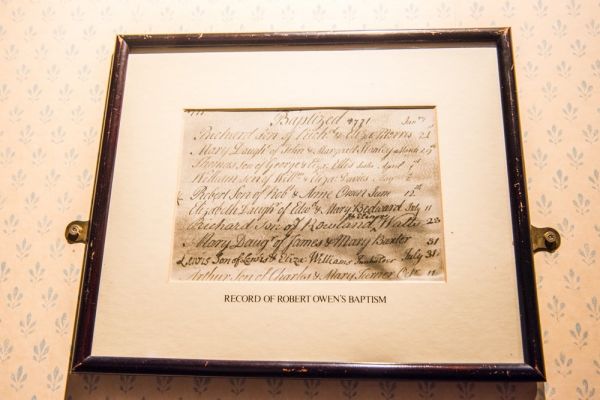 Baptized 1771
Richard Son of Rich.d & Eliz. Morris Jan.ry 21
Mary Daugh.r of John & Margaret March
Thomas Son of George & Eliz. Ellis April
William Son of Will.m & Eliza May
Robert Son of Rob.t & Anne Owen June 12th
Elizabeth Daugh.r of Edw.d & Mary Bedward July 11
Richard Son of Rowland Watts 23
Mary Daug.r of James & Mary Baxter 31
Lewis Son of Lewis & Eliza Williams July 31
Arthur Son of Charles & Mary Turner Oct.r 11
RECORD OF ROBERT OWEN'S BAPTISM